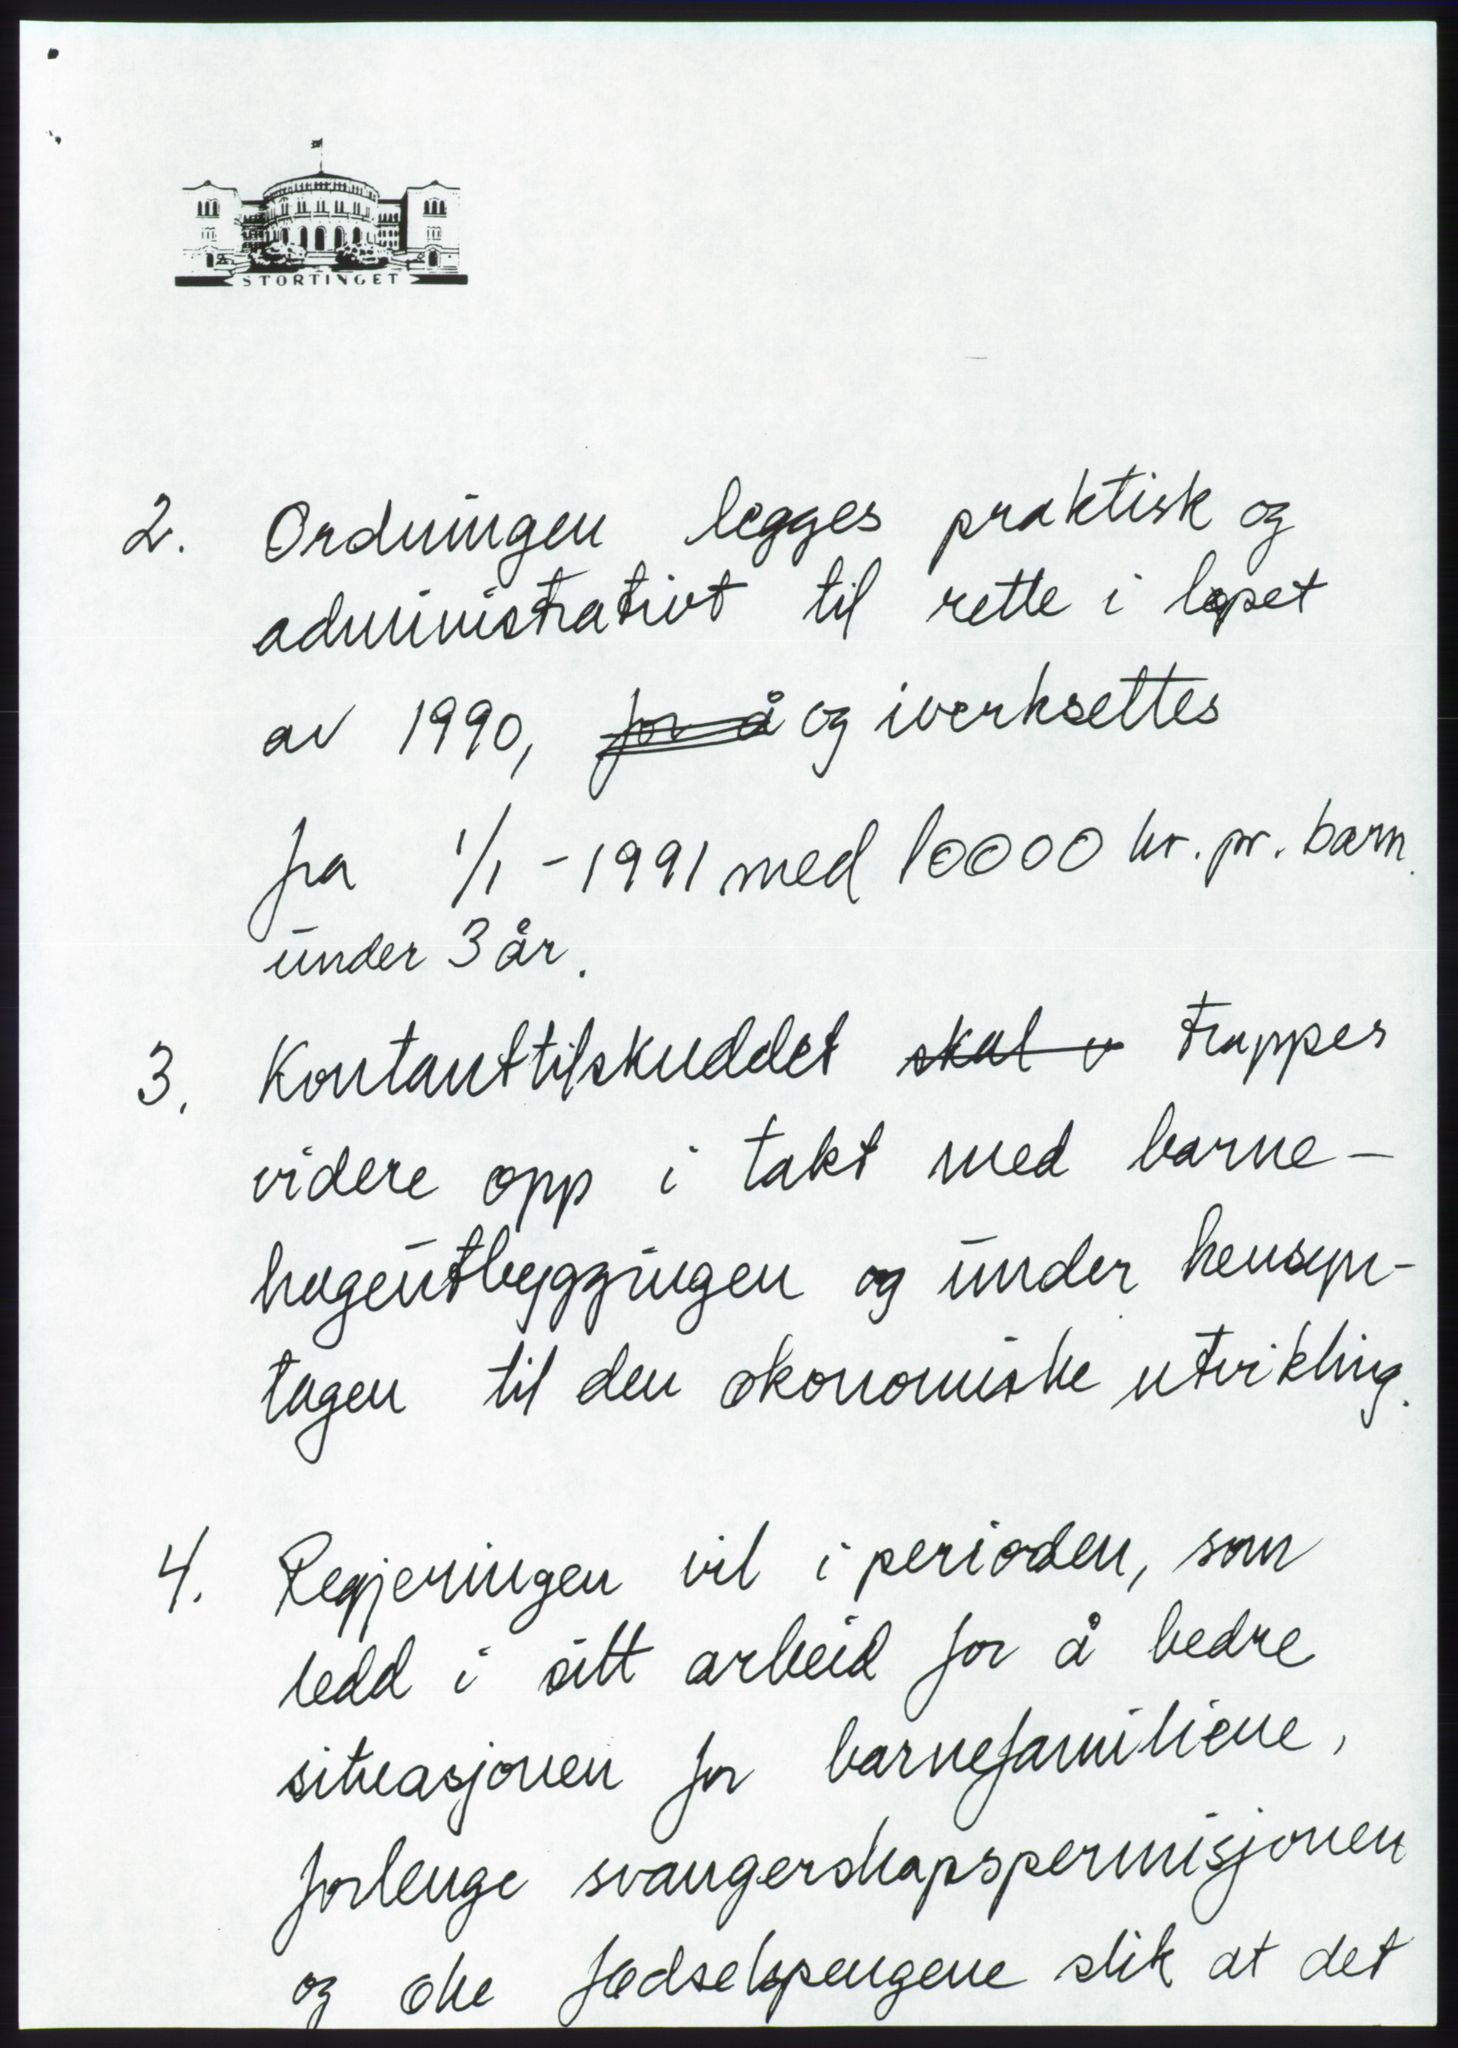 STORTINGET
2. Ordningen legges praktisk og
administrativt til rette i løpet
av 1990, for å og iverksettes
fra 1/1 - 1991 med 10000 kr. pr. barn
under 3 år.
3. Kontanttilskuddet skal v trappes
videre opp i takt med barne-
hageutbyggingen og under hensyn-
tagen til den økonomiske utvikling.
4. Regjeringen vil i perioden, som
ledd i sitt arbeid for å bedre
situasjonen for barnefamiliene,
forlenge svangerskapspermisjonen
og øke fødselspengene slik at det